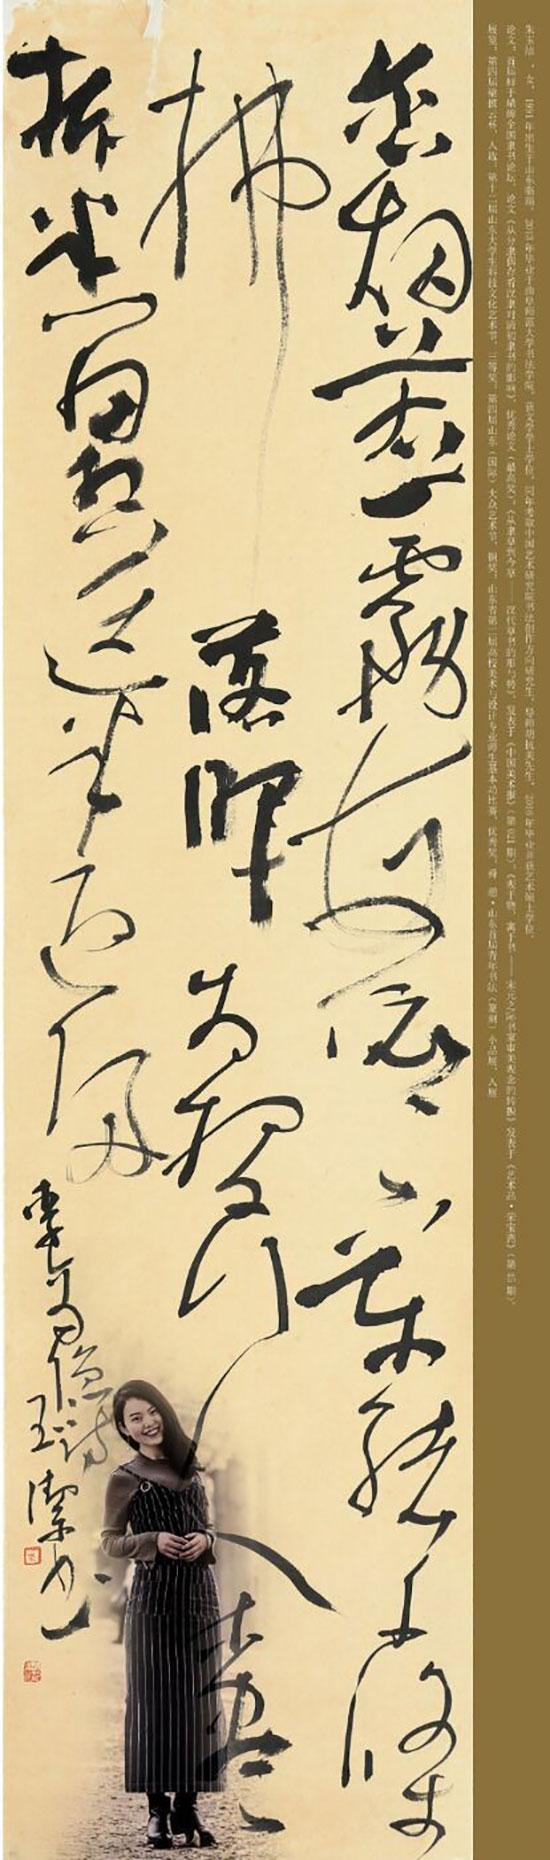 朱玉洁，女，1991年出生于山东临朐，2013年毕业于曲阜师范大学书法学院，获文学学士学位，同年考取中国艺术研究院书法创作方向研究生，导师胡抗美先生，2016年毕业并获艺术硕士学位。
论文：首届 全国隶书论坛，论文《从分隶 看汉隶对清初隶书的影响》优秀论文（最高奖），《从隶草到今草——汉代草书的 》发表于《中国美术报》（第 期），《 ——宋元之 书家审美观念的转换》发表于《艺术品·荣宝斋》（第 期）。
展览：第四届 ，入选，第十二届山东大学生科技文化艺术节，三等奖，第四届山东（国际）大众艺术节，铜奖，山东省第二届高校美术与设计专业师生基本功比赛，优秀奖， ·山东首届青年书法（篆刻）小品展，入展
含烟惹雾每依依万绪千条
拂落晖为报行人休尽
折半留相送半迎归
李商隐诗玉洁书